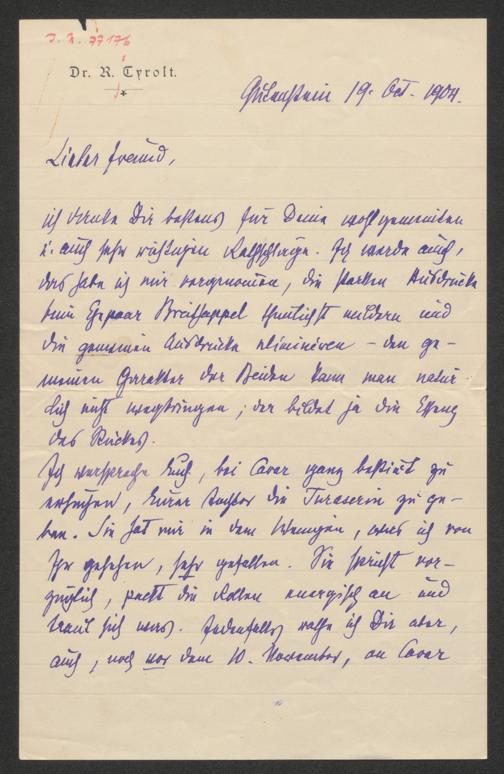 J. N. 77176
Dr. R. Tyrolt.
Gutenstein 19. Oct. 1904.
Lieber Freund,
ich danke Dir bestens für Deine wohlgemeinten
u. auch sehr richtigen Rathschläge. Ich werde auch,
das habe ich mir vorgenommen, die starken Ausdrücke
beim Ehepaar Breitsappel thunlichst mildern und
die gemeinen Ausdrücke eliminiren – den ge-
meinen Charakter der Beiden kann man natür-
lich nicht wegbringen; der bildet ja die Essenz
des Stückes.
Ich verspreche Euch, bei Cavar ganz bestimt zu
ersuchen, Eurer Tochter die Turaserin zu ge-
ben. Sie hat mir in dem Wenigen, was ich von
Ihr gesehen, sehr gefallen. Sie spricht vor-
züglich, packt die Rollen energisch an und
traut sich was. Jedenfalls rathe ich Dir aber,
auch, noch vor dem 10. November, an Cavar